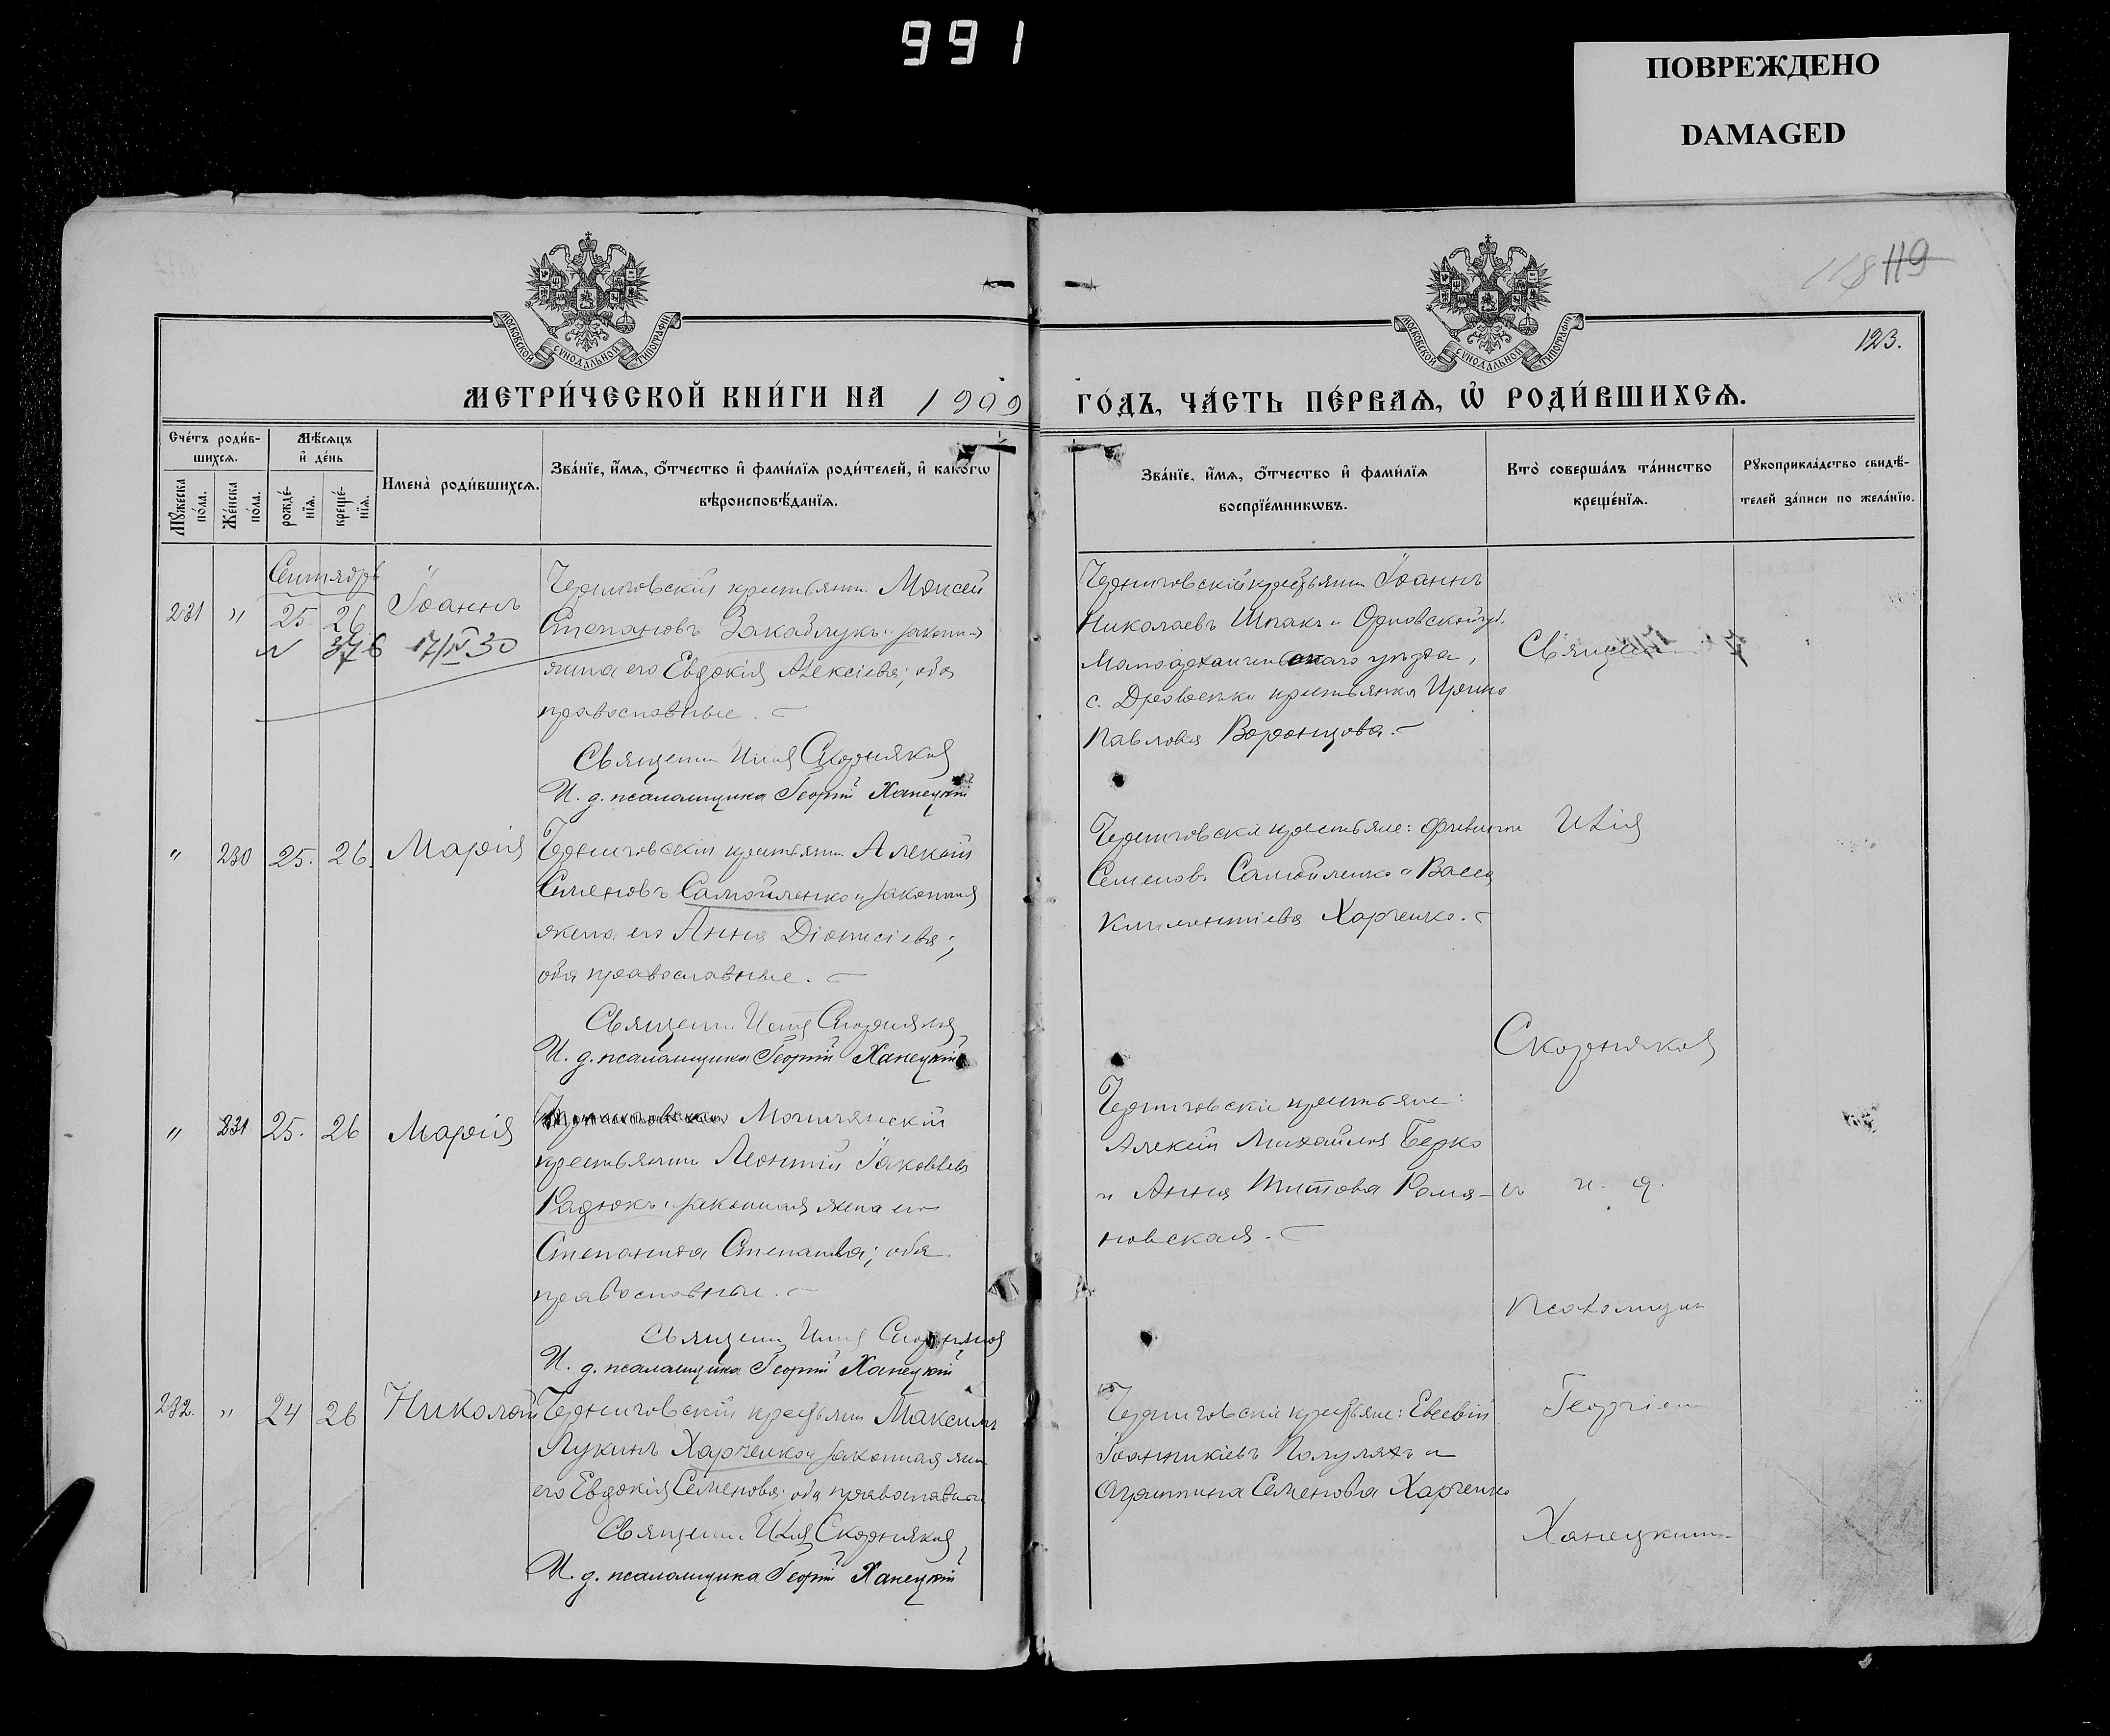 991
ПОВРЕЖДЕНО
DAMAGED
118 119
123.
МОСКОВСКОЙ СѴНОДАЛЬНОЙ ТИПОГРАФІИ
МОСКОВСКОЙ СѴНОДАЛЬНОЙ ТИПОГРАФІИ
МЕТРИ́ЧЕСКОЙ КНИ́ГИ НА 1909
ГО́ДЪ, ЧА́СТЬ ПЕ́РВАѦ, Ѡ҆ РОДИ́ВШИХСѦ.
Сче́тъ роди́в-
шихсѧ.
Мѣ́сѧцъ
и҆ де́нь
Мꙋ́жеска
по́ла.
Же́нска
по́ла.
рожде́-
нїѧ.
креще́-
нїѧ.
Имена̀ роди́вшихсѧ.
Зва́нїе, и҆́мѧ, ѻ҆́тчество и҆ фами́лїѧ роди́телей, и҆ како́гѡ
вѣроисповѣ́данїѧ.
Зва́нїе, и҆́мѧ, ѻ҆́тчество и҆ фами́лїѧ
воспрїе́мникѡвъ.
Кто̀ соверша́лъ та́инство
креще́нїѧ.
Рꙋкоприкла́дство свидѣ́-
телей за́писи по жела́нїю.
Сентябрь
231 " 25. 26 Іоаннъ
376 17/IV 30
Черниговскій крестьянин Моисей
Степановъ Закаблукъ и законная
жена его Евдокія Алексіева; оба
православные.
Священ. Илія Скорняков
И. д. псаломщика Георгій Ханецкій
Черниговскій крестьянин Іоаннъ
Николаевъ Шпакъ и Орловской губ.
Малоархангельскаго уѣзда,
крестьянка Ирина
Павлова Воронцова.
Священ
" 230 25. 26. Марія
Черниговскій крестьянин Алексій
Семеновъ Самойленко и законная
жена его Анна Діонисіева;
оба православные.
Священ. Илія Скорняков
И. д. псаломщика Георгій Ханецкій
Черниговскіе крестьяне:
Семеновъ Самойленко и Васса
Климентіева Харченко.
Илія
Скорняков
" 231 25. 26 Марія
Могилянскій
крестьянин Леонтій Іаковлев
Радюкъ и законная жена его
Степанида Степанова; оба
православные.
Священ Илія Скорняков
И. д. псаломщика Георгій Ханецкій
Черниговскіе крестьяне:
Алексій Михайлов Берко
и Анна Титова Рома-
новская.
съ и. д.
псаломщик
232. " 24 26 Николай
Черниговскій крестьянин Максимъ
Лукинъ Харченко и законная жена
его Евдокія Семенова; оба православные
Священ. Илія Скорняков
И. д. псаломщика Георгій Ханецкій
Черниговскіе крестьяне: Евсевій
Іоанникіевъ Полуляхъ и
Агриппина Семенова Харченко
Георгіем
Ханецким